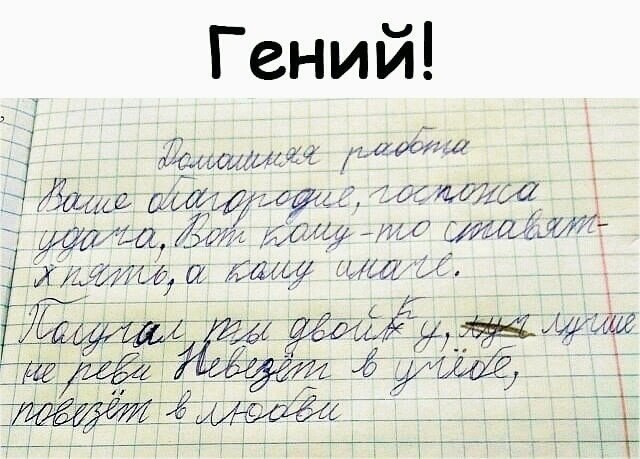 Гений!
Домашняя работа
Ваше благородие, госпожа
удача, Вот кому-то ставят-
х пять, а кому иначе.
Получил ты двойку, луч лучше
не реви Невезёт в учёбе,
повезёт в любви